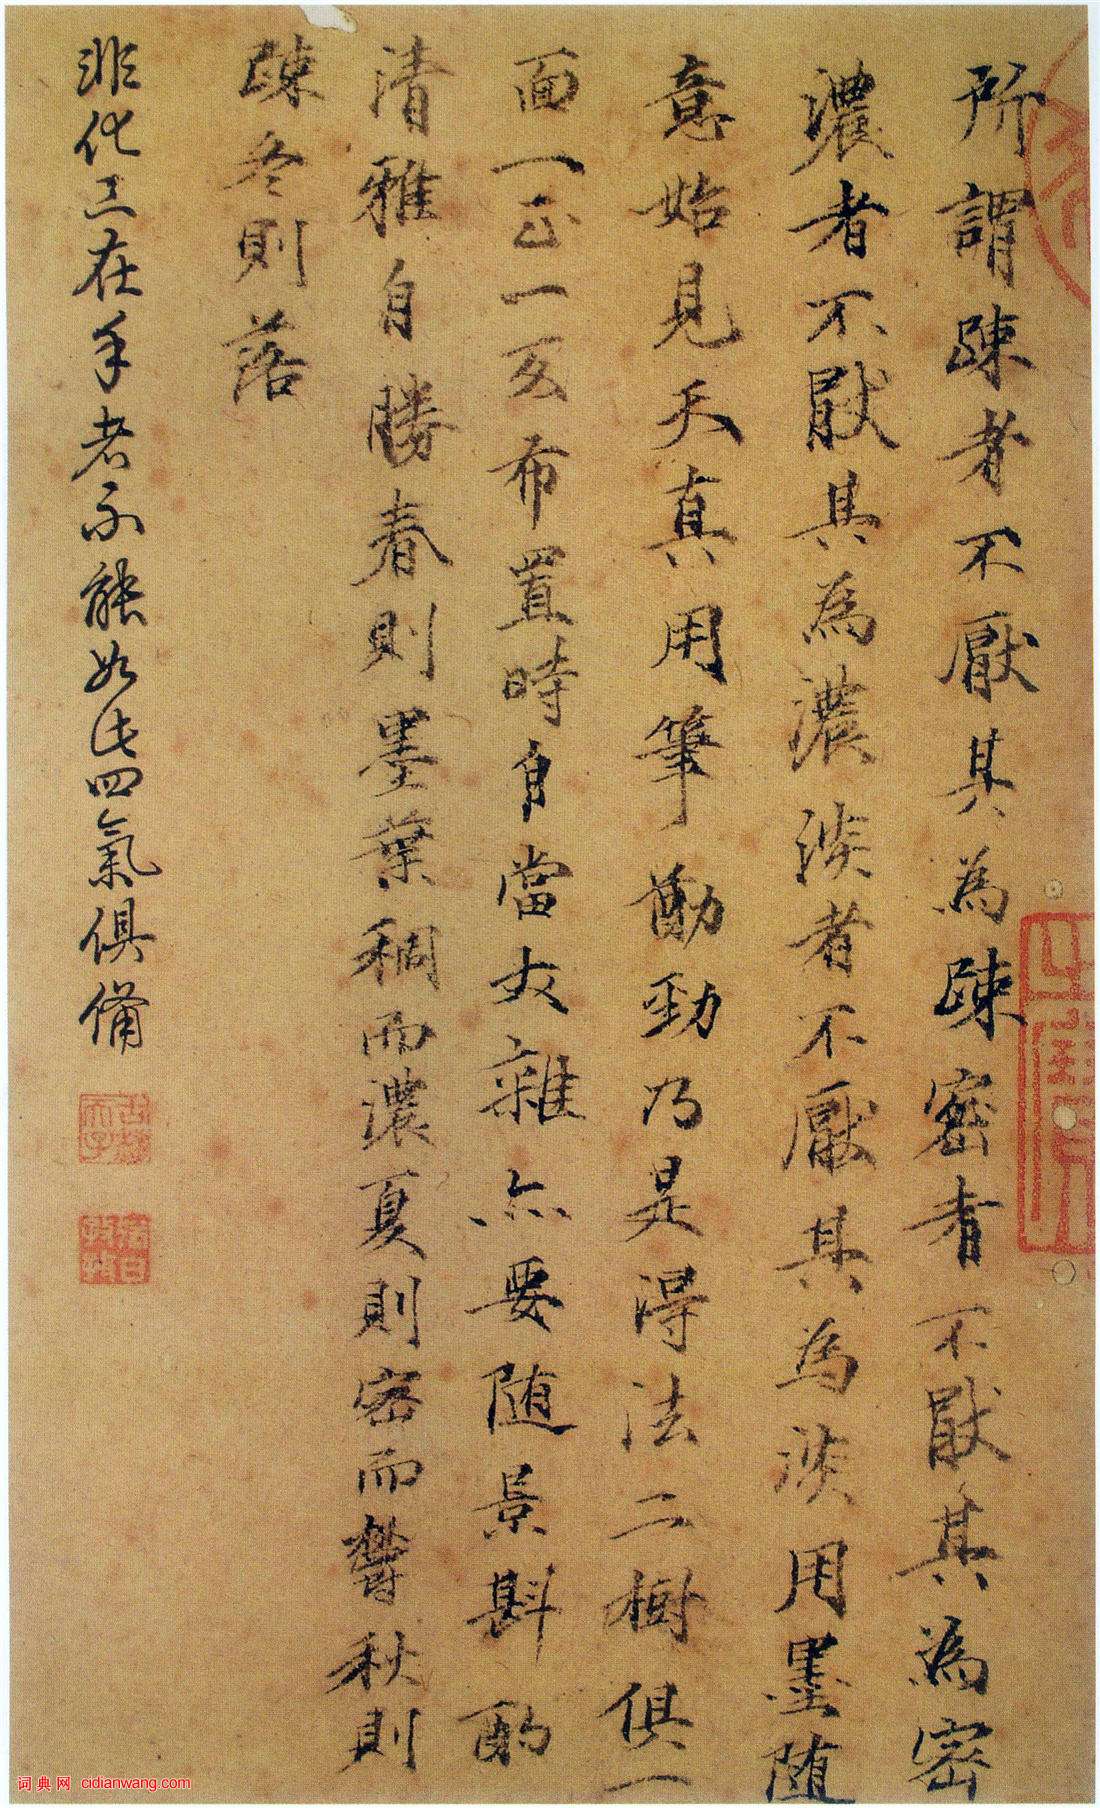 所謂踈者不厭其為踈密者不厭其為密
濃者不厭其為濃淡者不厭其為淡用墨随
意始見天真用筆遒勁乃是得法二樹俱一
面一正一布置時自當交雜亦要随景斟酌
清雅自勝春則墨葉稠而濃夏則密而欝秋則
踈冬則落
非化工在手者不能如此四氣俱備
词典网 cidianwang.com